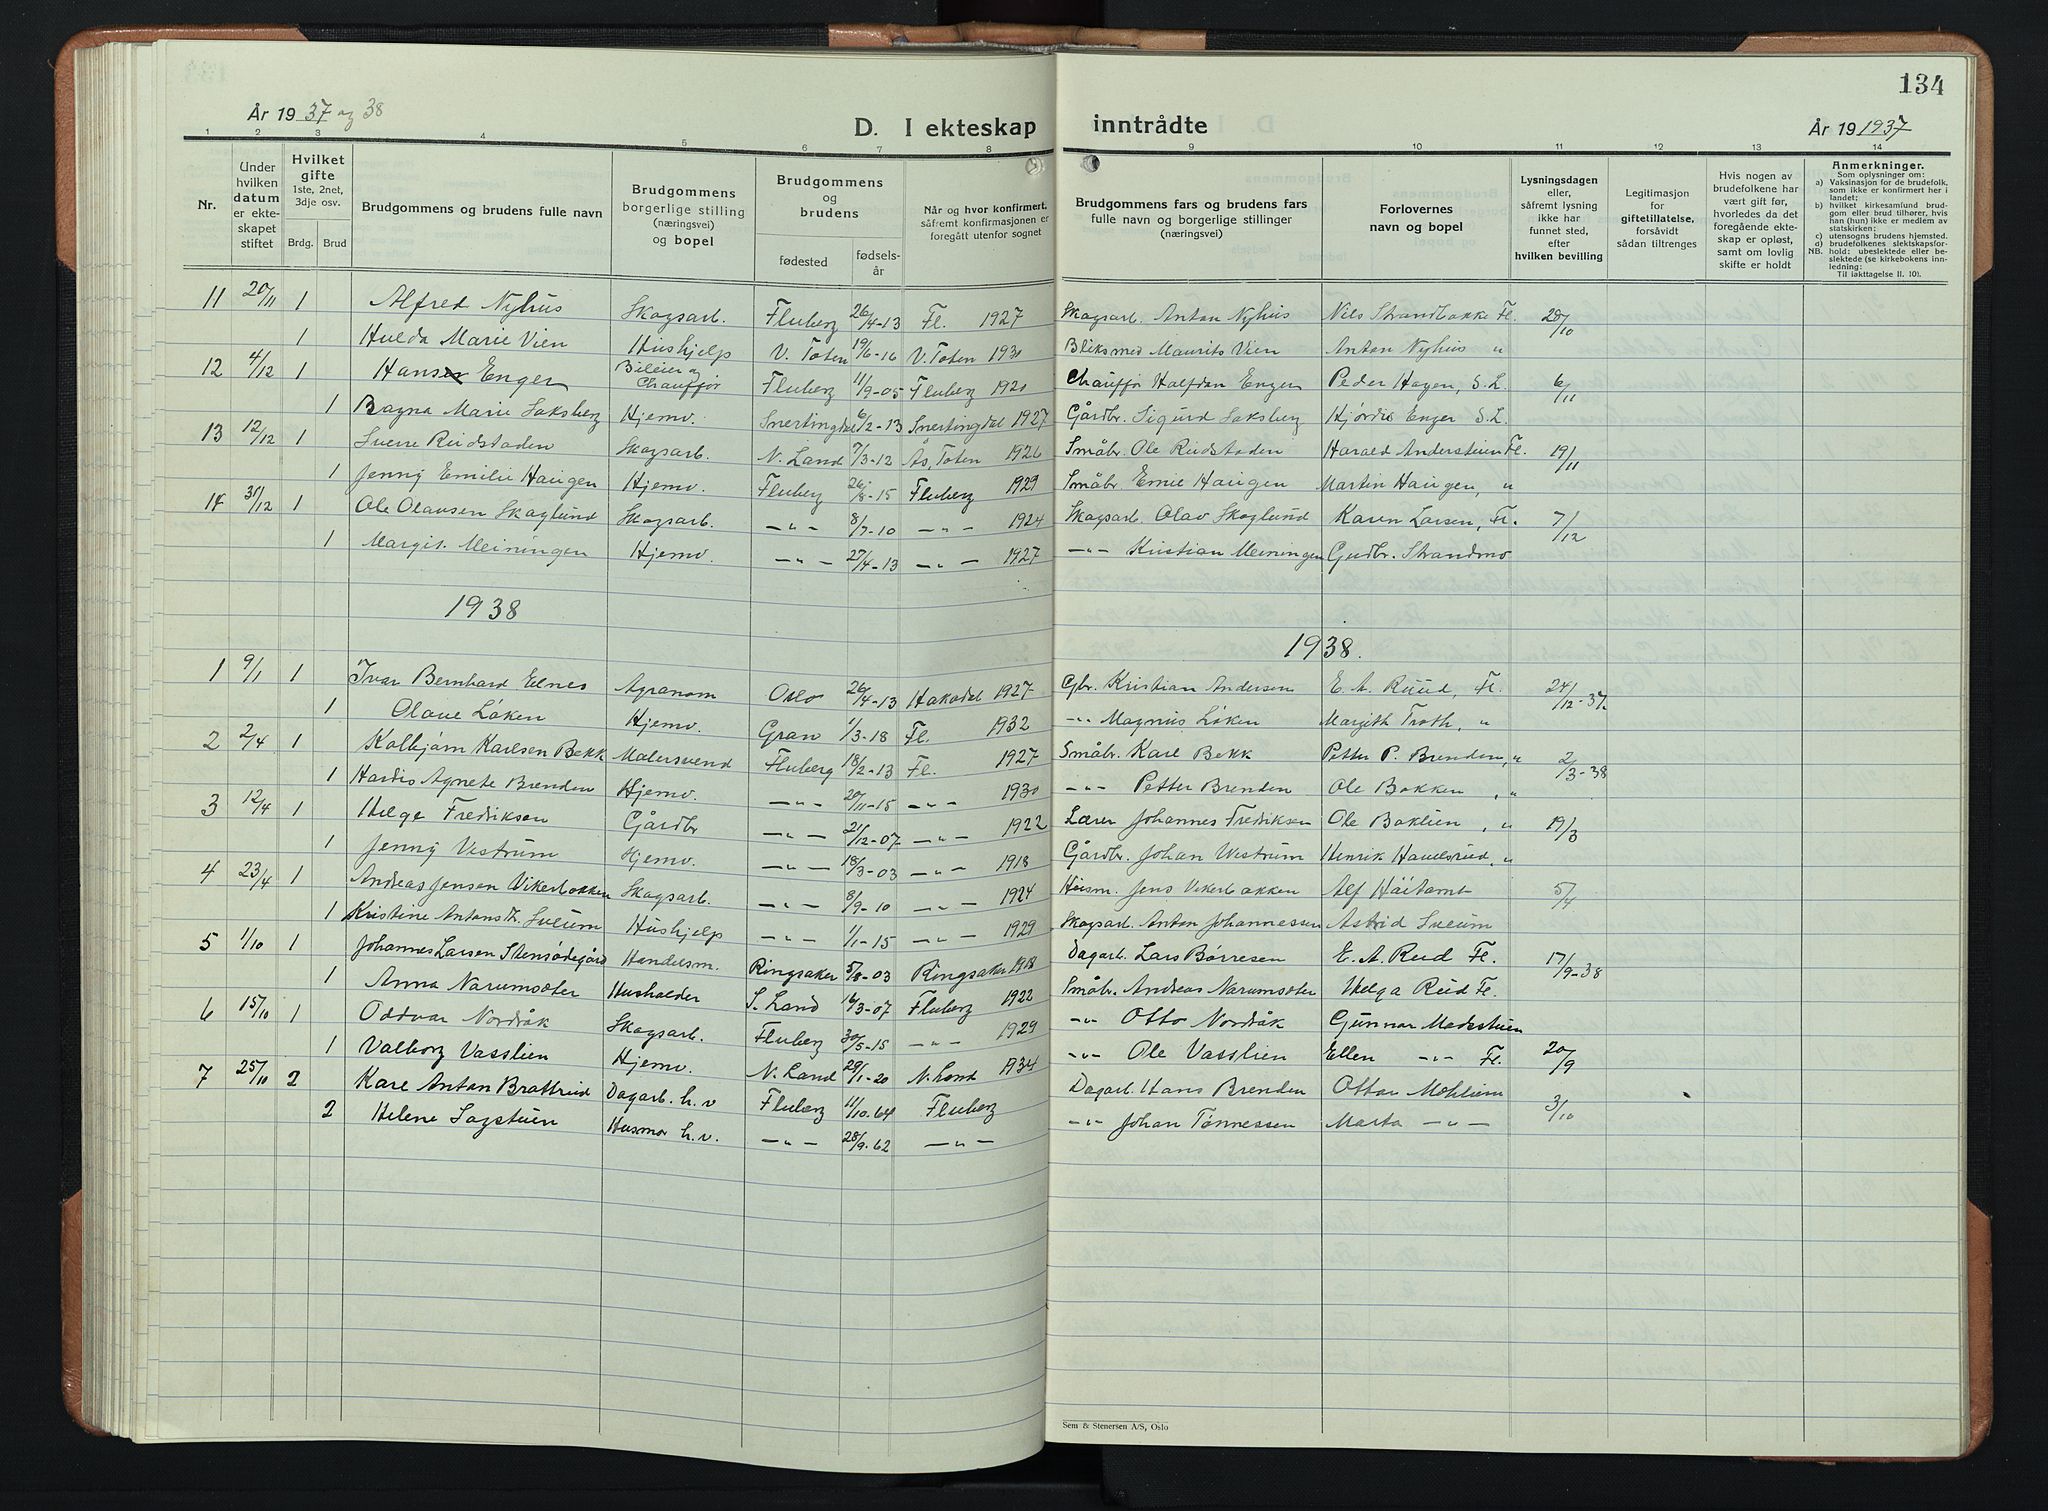 134
År 1937 og 38
D. I ekteskap inntrådte
År 191937
1 2 3 4 5 6 7 8 9 10 11 12 13 14
Nr.
Under hvilken datum er ekteskapet stiftet
Hvilket gifte 1ste, 2net, 3dje osv.
Brdg. Brud
Brudgommens og brudens fulle navn
Brudgommens borgerlige stilling (næringsvei) og bopel
Brudgommens og brudens
fødested fødselsår
Når og hvor konfirmert, såfremt konfirmasjonen er foregått utenfor sognet
Brudgommens fars og brudens fars fulle navn og borgerlige stillinger (næringsvei)
Forlovernes navn og bopel
Lysningsdagen eller, såfremt lysning ikke har funnet sted, efter hvilken bevilling
Legitimasjon for giftetillatelse, forsåvidt sådan tiltrenges
Hvis nogen av brudefolkene har vært gift før, hvorledes da det foregående ekteskap er opløst, samt om lovlig skifte er holdt
Anmerkninger.
Som oplysninger om:
a) Vaksinasjon for de brudefolk, som ikke er konfirmert her i landet;
b) hvilket kirkesamfund brudgom eller brud tilhører, hvis han (hun) ikke er medlem av statskirken;
c) utensogns brudens hjemsted.
d) brudefolkenes slektskapsforhold: ubeslektede eller beslektede (se kirkebokens innledning:
NB. Til iakttagelse II. 10).
11 20/11 1 Alfred Nyhus Skogsarb. Fluberg 26/4-13 Fl. 1927 Skogsarb. Anton Nyhus Nils Strandbakke Fl. 28/10
1 Hulda Marie Vien Hushjelp V. Toten 19/6-16 V. Toten 1930 Bliksmed Maurits Vien Anton Nyhus "
12 4/12 1 Hans Enger Bileier og Chauffør Fluberg 11/9-05 Fluberg 1920 Chauffør Halfdan Enger Peder Hagen, S.L. 6/11
1 Bagna Marie Saksberg Hjemv. Snertingdal 6/2-13 Snertingdal 1927 Gårdbr. Sigurd Saksberg Hjørdis Enger S.L.
13 12/12 1 Sverre Rudstaden Skogsarb. N. Land 7/3-12 Ås, Toten 1926 Småbr. Ole Rudstaden Harald Anderstuen Fl. 19/11
1 Jenny Emilie Haugen Hjemv. Fluberg 26/8-15 Fluberg 1929 Småbr. Emil Haugen Martin Haugen, "
14 31/12 1 Ole Olausen Skoglund Skogsarb. — " — 8/7-10 — " — 1924 Skogsarb. Olav Skoglund Karen Larsen, Fl. 7/12
1 Margit Meiningen Hjemv. — " — 27/4-13 — " — 1927 — " — Kristian Meiningen Gudbr. Strandmo
1938
1938.
1 9/1 1 Ivar Bernhard Elnes Agronom Oslo 26/4-13 Hakadal 1927 Gbr. Kristian Andersen E. A. Ruud, Fl. 24/12-37.
1 Olaue Løken Hjemv. Gran 1/3-18 Fl. 1932 — " — Magnus Løken Margith Troth, "
2 2/4 1 Kolbjørn Karlsen Bekk Malersvend Fluberg 18/2-13 Fl. 1927 Småbr. Karl Bekk Petter P. Brenden, " 2/3-38
1 Hardis Agnete Brenden Hjemv. — " — 20/11-15 — " — 1930 — " — Petter Brenden Ole Bakken, "
3 12/4 1 Helge Fredriksen Gårdbr — " — 21/12-07 — " — 1922 Lærer Johannes Fredriksen Ole Baklien, " 19/3
1 Jenny Vestrum Hjemv. — " — 18/3-03 — " — 1918 Gårdbr. Johan Westrum Henrik Havelsrud, "
4 23/4 1 Andreas Jensen Vikerbakken Skogsarb. — " — 8/9-10 — " — 1924 Husm. Jens Vikerbakken Alf Håitomt 5/4
1 Kristine Antonsdt. Sveum Hushjelp — " — 1/1-15 — " — 1929 Skogsarb. Anton Johannessen Astrid Sveum
5 1/10 1 Johannes Larsen Stensødegård Handelsm. Ringsaker 5/8-03 Ringsaker 1918 Dagarb. Lars Børresen E. A. Rud Fl. 17/9-38
1 Anna Narumsæter Husholder S. Land 16/3-07 Fluberg 1922 Småbr. Andreas Narumsæter Helga Rud Fl.
6 15/10 1 Oddvar Nordråk Skogsarb. Fluberg 30/5-15 — " — 1929 — " — Otto Nordråk Gunnar Madsstuen
1 Valborg Vasslien Hjemv. N. Land 29/1-20 N. Land 1934 — " — Ole Vasslien Ellen — " — Fl. 20/9
7 25/10 2 Karl Anton Brattrud Dagarb. h.v Fluberg 11/10-64 Fluberg Dagarb. Hans Brenden Ottar Mohlien 3/10
2 Helene Sagstuen Husmor h.v. — " — 28/9-62 — " — — " — Johan Tønnessen Marta — " —
Sem & Stenersen A/S, Oslo